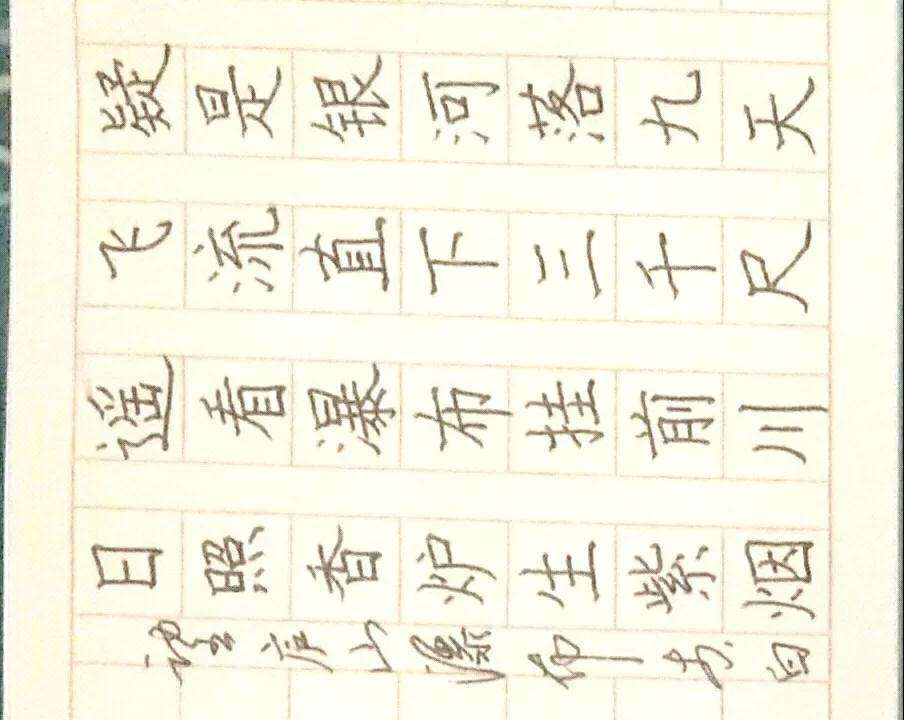 望庐山瀑布 李白
日照香炉生紫烟
遥看瀑布挂前川
飞流直下三千尺
疑是银河落九天